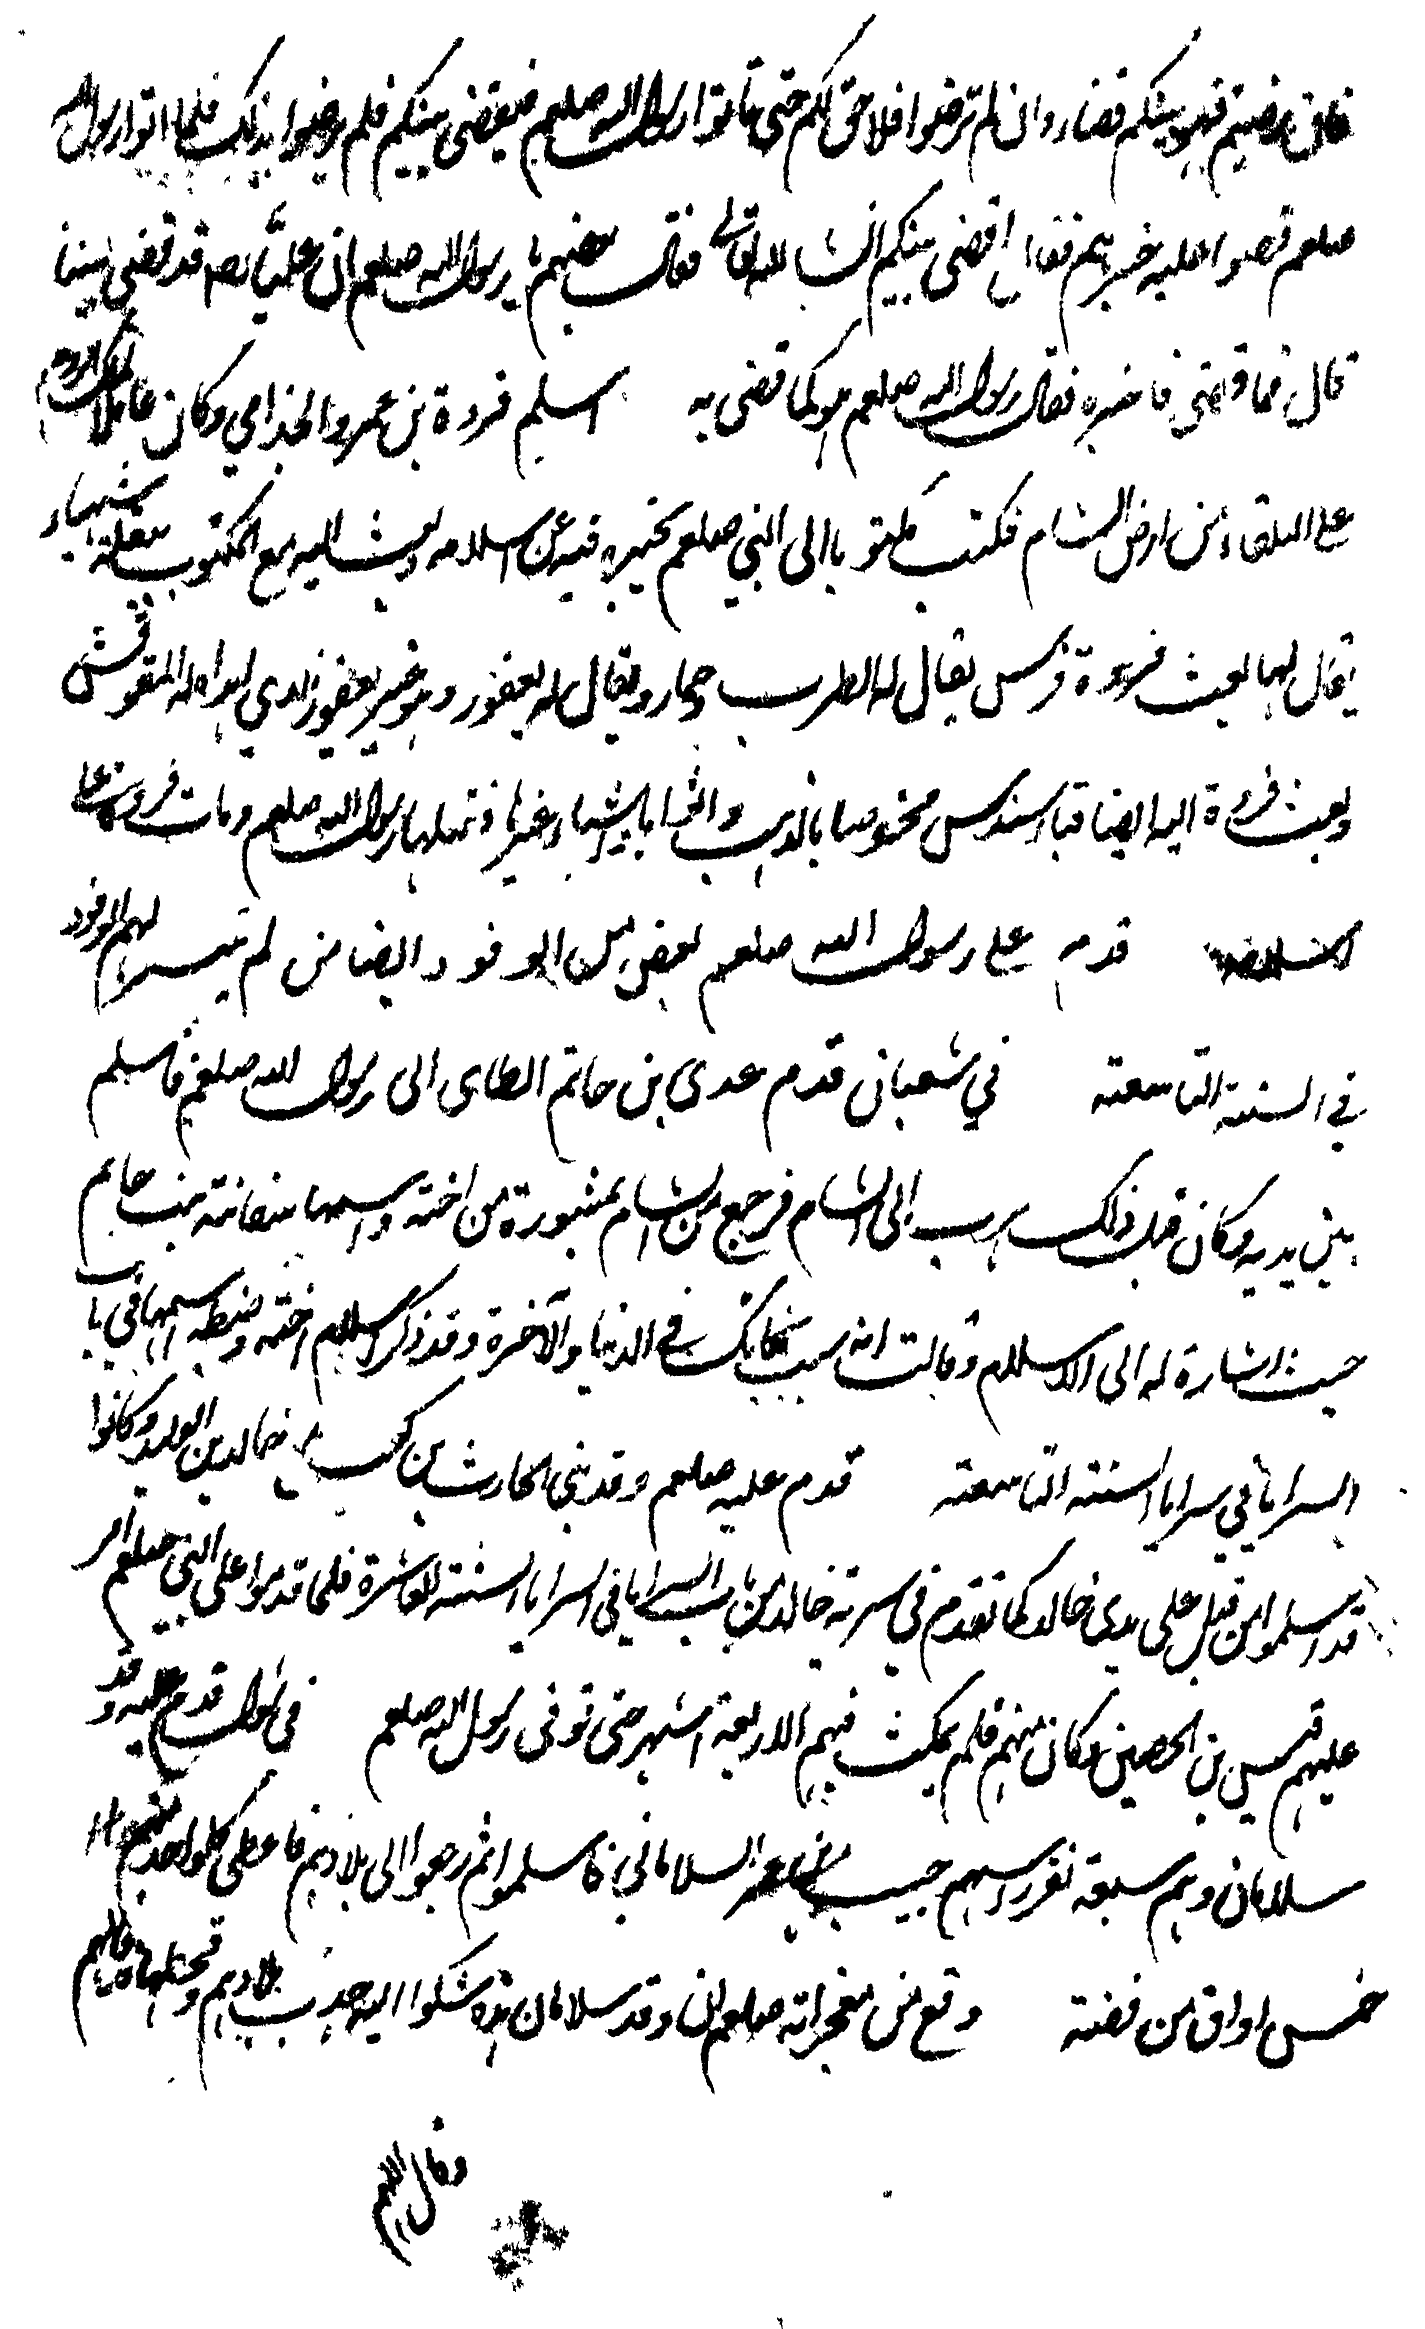 فان رضيتم فهو بينكم قضاء وان لم ترضوا فلا حق لكم حتى تاتوا رسول الله صلعم فيقضى بينكم فلم يرضوا بذلك فلما اتوا رسول الله
صلعم قصوا عليه خبرهم فقال اقضى بينكم انشا الله تعالى فقال بعضهم يا رسول الله صلعم ان عليا رضه قد قضى بيننا
قال فما قضى فاخبره فقال رسول الله صلعم هو كما قضى به اسلم فروة بن عمرو الجذامي وكان عاملا لملك الروم
على البلقاء من ارض الشام فكتب مكتوبا الى النبي صلعم يخبره فيه عن اسلامه وبعث اليه مع المكتوب بغلة شهباء
يقال لها وبعث فروة فرس يقال له الظرب وحمار ويقال له يعفور وهو غير يعفور الذي اهداه له المقوقش
وبعث فروة اليه ايضا قباء سندس مخوصا بالذهب واثوابا وغيرها فقبلها رسول الله صلعم ومات فروة على
الاسلام قدم على رسول الله صلعم بعض اهل الوفود ايضا من لم تيسر لهم الوفود
في السنة التاسعة في شعبان قدم عدي بن حاتم الطاى الى رسول الله صلعم فاسلم
بين يديه وكان قبل ذلك هرب الى الشام فرجع من الشام بمشورة من اخته واسمها سفانة بنت حاتم
حيث اشارة له الى الاسلام وقالت انه سبب نجاتك في الدنيا والآخرة وقد ذكر اسلام اخته وضبط اسمها في باب
السرايا في سرايا السنة التاسعة قدم عليه صلعم وفد بني الحارث بن كعب مع خالد بن الوليد وكانوا
قد اسلموا من قبل على يدي خالد كما تقدم في سرية خالد من باب السرايا في سرايا السنة العاشرة فلما قدموا على النبي صلعم امر
عليهم قيس بن الحصين وكان منهم فلم يمكث فيهم الا اربعة اشهر حتى توفى رسول الله صلعم في شوال قدم عليه وفد
سلامان وهم سبعة نفر راسهم حبيب السلاماني فاسلموا ثم رجعوا الى بلادهم فاعطى كلواحد منهم
خمس اواق من فضة وقع من معجزاته صلعم ان وفد سلامان هذه شكوا اليه جدب بلادهم وقحطها فدعا لهم
وقال اللهم